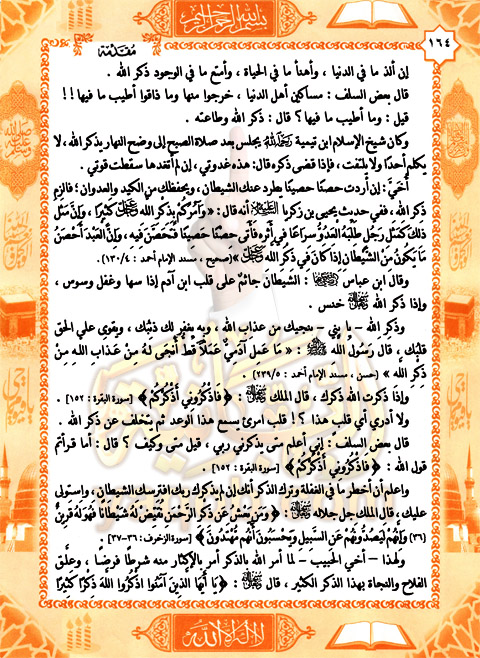 بسم الله الرحمن الرحيم
مقدمة
١٦٤
إن ألذ ما في الدنيا ، وأهنأ ما في الحياة ، وأمتع ما في الوجود ذكر الله .
قال بعض السلف : مساكين أهل الدنيا ، خرجوا منها وما ذاقوا أطيب ما فيها !!
قيل : وما أطيب ما فيها ؟ قال : ذكر الله وطاعته .
وكان شيخ الإسلام ابن تيمية رحمه الله يجلس بعد صلاة الصبح إلى وضح النهار يذكر الله ، لا
يكلم أحدًا ولا يلتفت ، فإذا قضى ذكره قال : هذه غدوتي ، إن لم أتغدها سقطت قوتي .
أُخيَّ : إن أردت حصنًا حصينًا طرد عنك الشيطان ، ويحفظك من الكيد والعدوان ؛ فالزم
ذكر الله ، ففي حديث يحيى بن زكريا أنه قال : « وَآمُرُكُمْ بِذِكْرِ اللهِ كَثِيرًا ، وَإِنَّ مَثَلَ
ذَلِكَ كَمَثَلِ رَجُلٍ طَلَبَهُ الْعَدُوُّ سِرَاعًا فِي أَثَرِهِ فَأَتَى حِصْنًا حَصِينًا فَتَحَصَّنَ فِيهِ ، وَإِنَّ الْعَبْدَ أَحْصَنُ
مَا يَكُونُ مِنَ الشَّيْطَانِ إِذَا كَانَ فِي ذِكْرِ اللهِ » (صحيح ، مسند الإمام أحمد : ١٣٠/٤) .
وقال ابن عباس : الشيطان جاثمٌ على قلب ابن آدم إذا سها وغفل وسوس ،
وإذا ذكر الله خنس .
وذكر الله - يا بني - منجيك من عذاب الله ، وبه يغفر لك ذنبك ، ويقوى على الحق
قلبك ، قال رَسُولُ الله ﷺ : « مَا عَمِلَ آدَمِيٌّ عَمَلًا قَطُّ أَنْجَى لَهُ مِنْ عَذَابِ اللهِ مِنْ
ذِكْرِ اللهِ » (حسن ، مسند الإمام أحمد : ٢٣٩/٥) .
وإذا ذكرت الله ذكرك ، قال الملك : ﴿ فَاذْكُرُونِي أَذْكُرْكُمْ ﴾ [سورة البقرة : ١٥٢] .
ولا أدري أي قلب هذا ؟! قلب امرئ يسمع هذا الوعد ثم يتخلف عن ذكر الله .
قال بعض السلف : إني أعلم متى يذكرني ربي ، قيل متى وكيف ؟ قال : أما قرأتم
قول الله : ﴿ فَاذْكُرُونِي أَذْكُرْكُمْ ﴾ [سورة البقرة : ١٥٢] .
واعلم أن أخطر ما في الغفلة وترك الذكر أنك إن لم يذكرك ربك افترسك الشيطان ، واستولى
عليك ، قال الملك جل جلاله : ﴿ وَمَنْ يَعْشُ عَنْ ذِكْرِ الرَّحْمَنِ نُقَيِّضْ لَهُ شَيْطَانًا فَهُوَ لَهُ قَرِينٌ
(٣٦) وَإِنَّهُمْ لَيَصُدُّونَهُمْ عَنِ السَّبِيلِ وَيَحْسَبُونَ أَنَّهُمْ مُهْتَدُونَ ﴾ [سورة الزخرف : ٣٦-٣٧] .
ولهذا - أخي الحبيب - لما أمر الله بالذكر أمر بالإكثار منه شرطًا فرضًا ، وعلَّق
الفلاح والنجاة بهذا الذكر الكثير ، قال : ﴿ يَا أَيُّهَا الَّذِينَ آمَنُوا اذْكُرُوا اللهَ ذِكْرًا كَثِيرًا
لا إله إلا الله